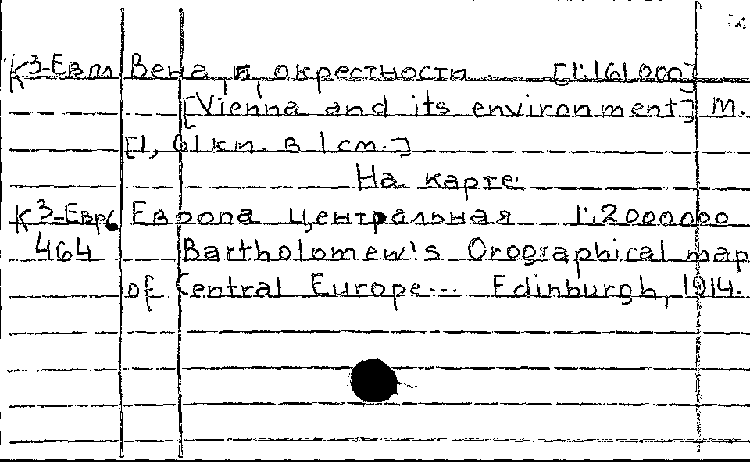 К3-Евм Вена и окрестности [1:161 000]
[Vienna and its environment] М.
[1,61 км. в 1 см.]
На карте:
К3-Евр6 Европа Центральная 1:2000000
464 Bartholomew's Orographical map
of Central Europe... Edinburgh, 1914.